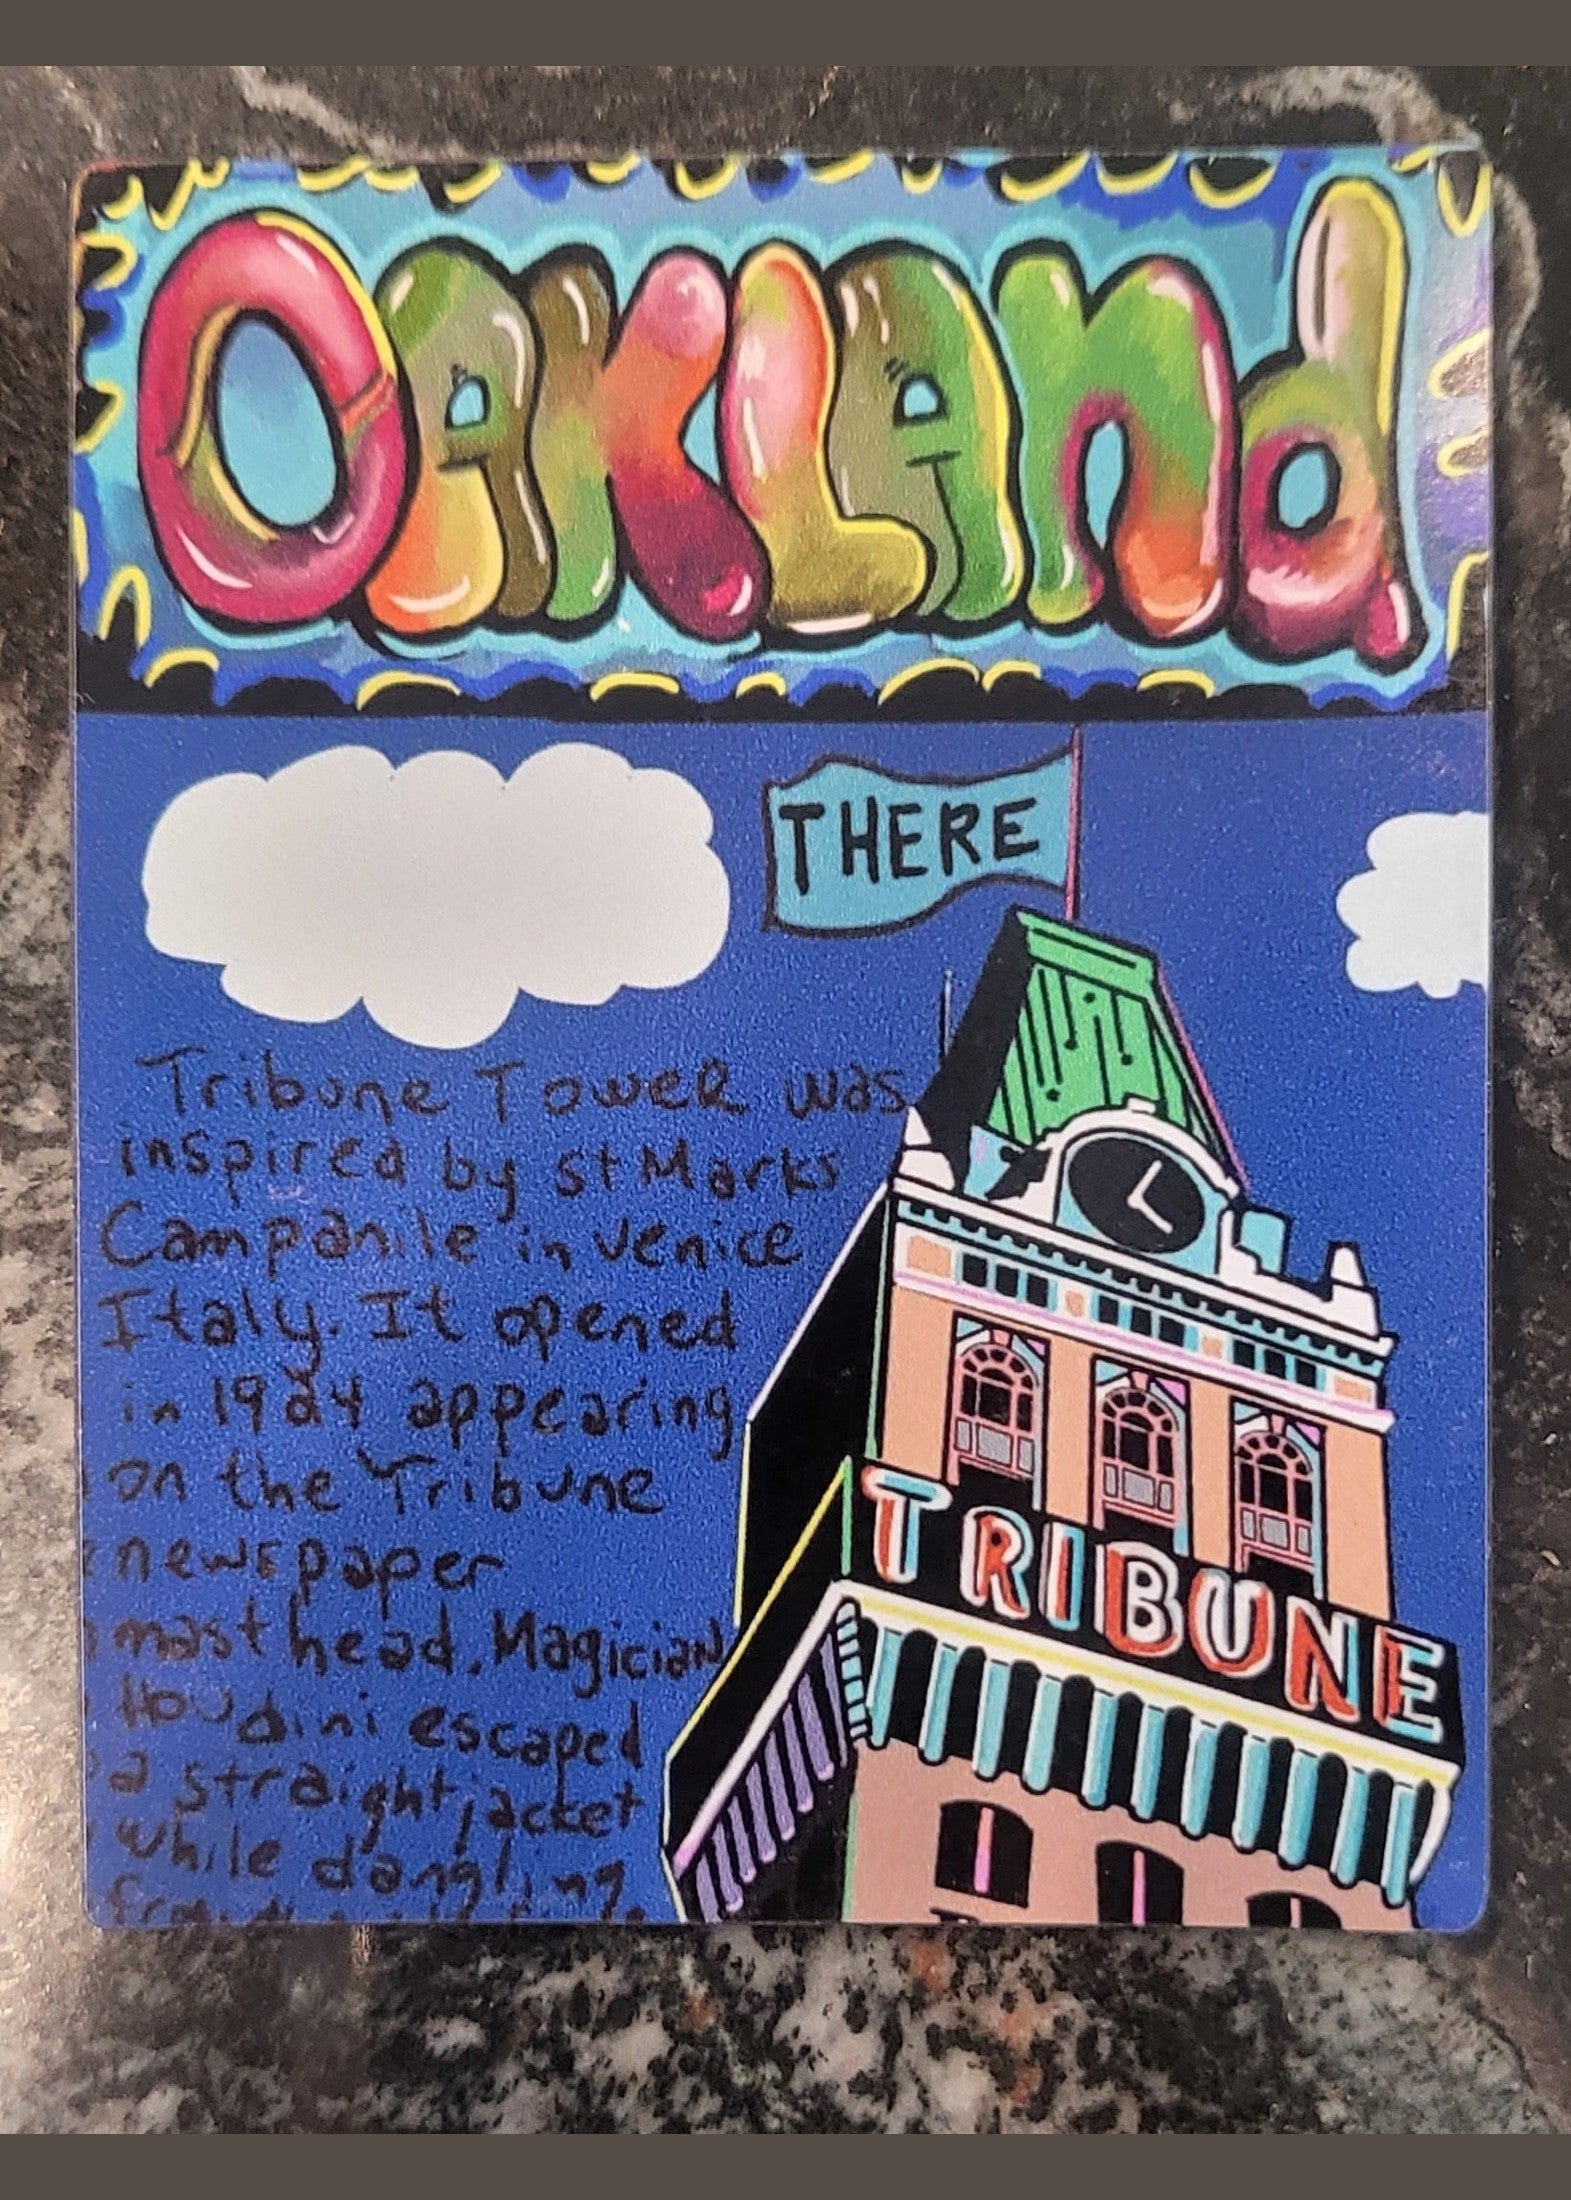 OAKLAnd
THERE
Tribune Tower was
inspired by st Marks
Campanile in venice
Italy. It opened
in 1924 appearing
on the Tribune
newspaper
mast head. Magician
Houdini escaped
a straight jacket
while dangling
TRIBUNE